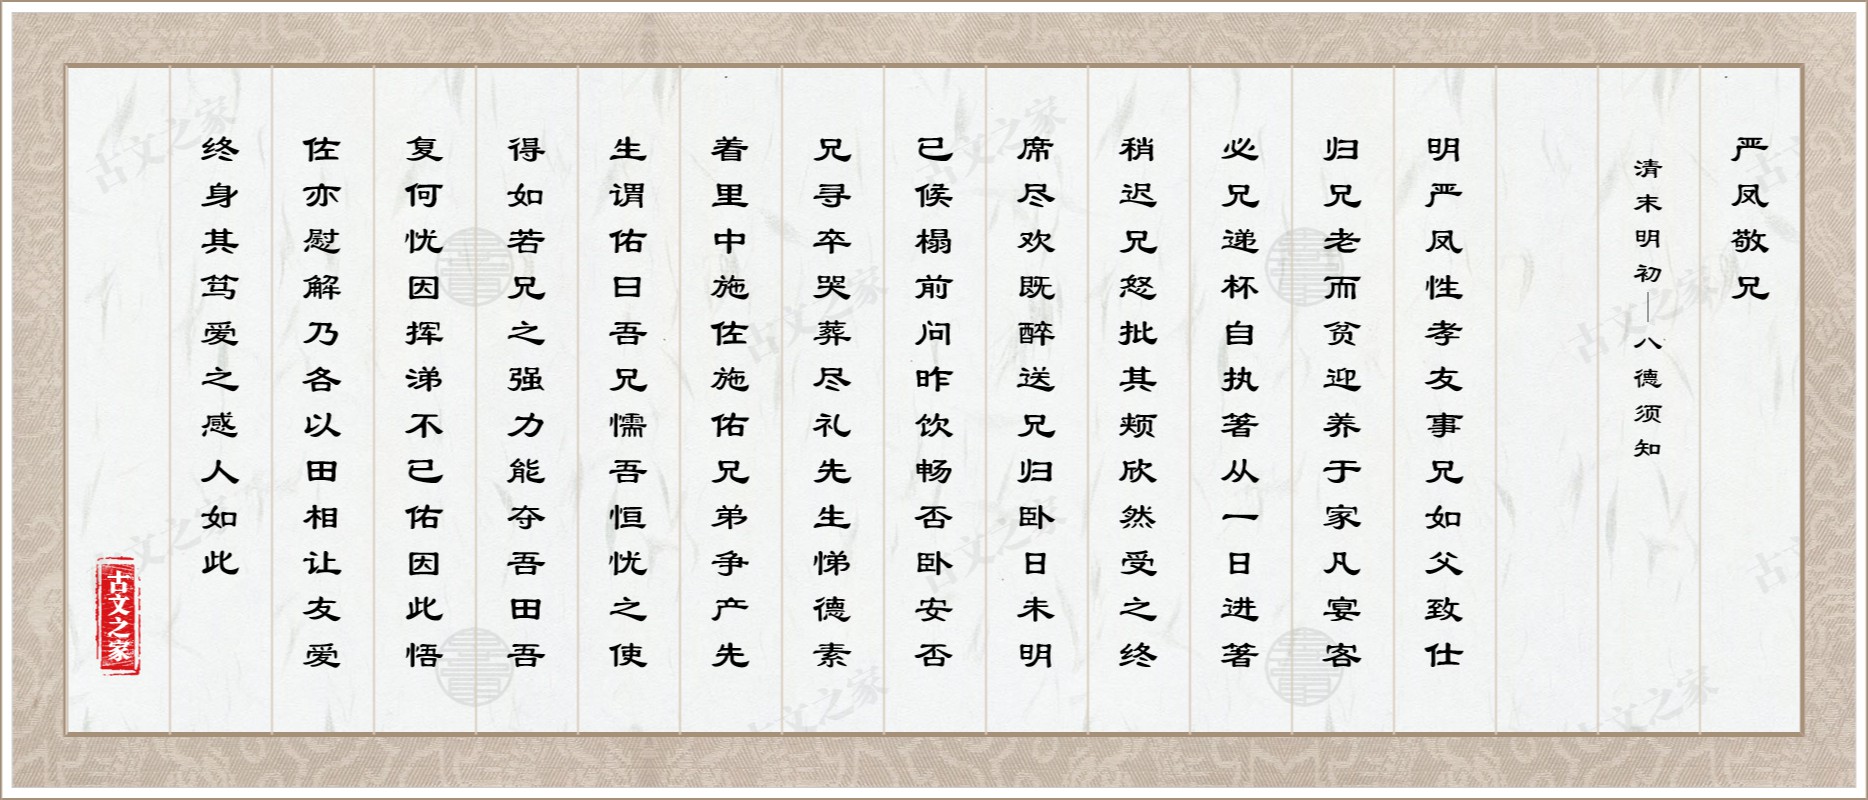 严凤敬兄
清末明初｜八德须知
明严凤性孝友事兄如父致仕
归兄老而贫迎养于家凡宴客
必兄递杯自执著从一日进著
稍迟兄怒批其颊欣然受之终
席尽欢既醉送兄归卧日未明
已候榻前问昨饮畅否卧安否
兄寻卒哭葬尽礼先生悌德素
着里中施佐施佑兄弟争产先
生谓佑曰吾兄懦吾恒忧之使
得如若兄之强力能夺吾田吾
复何忧因挥涕不已佑因此悟
佐亦慰解乃各以田相让友爱
终身其笃爱之感人如此
古文之家